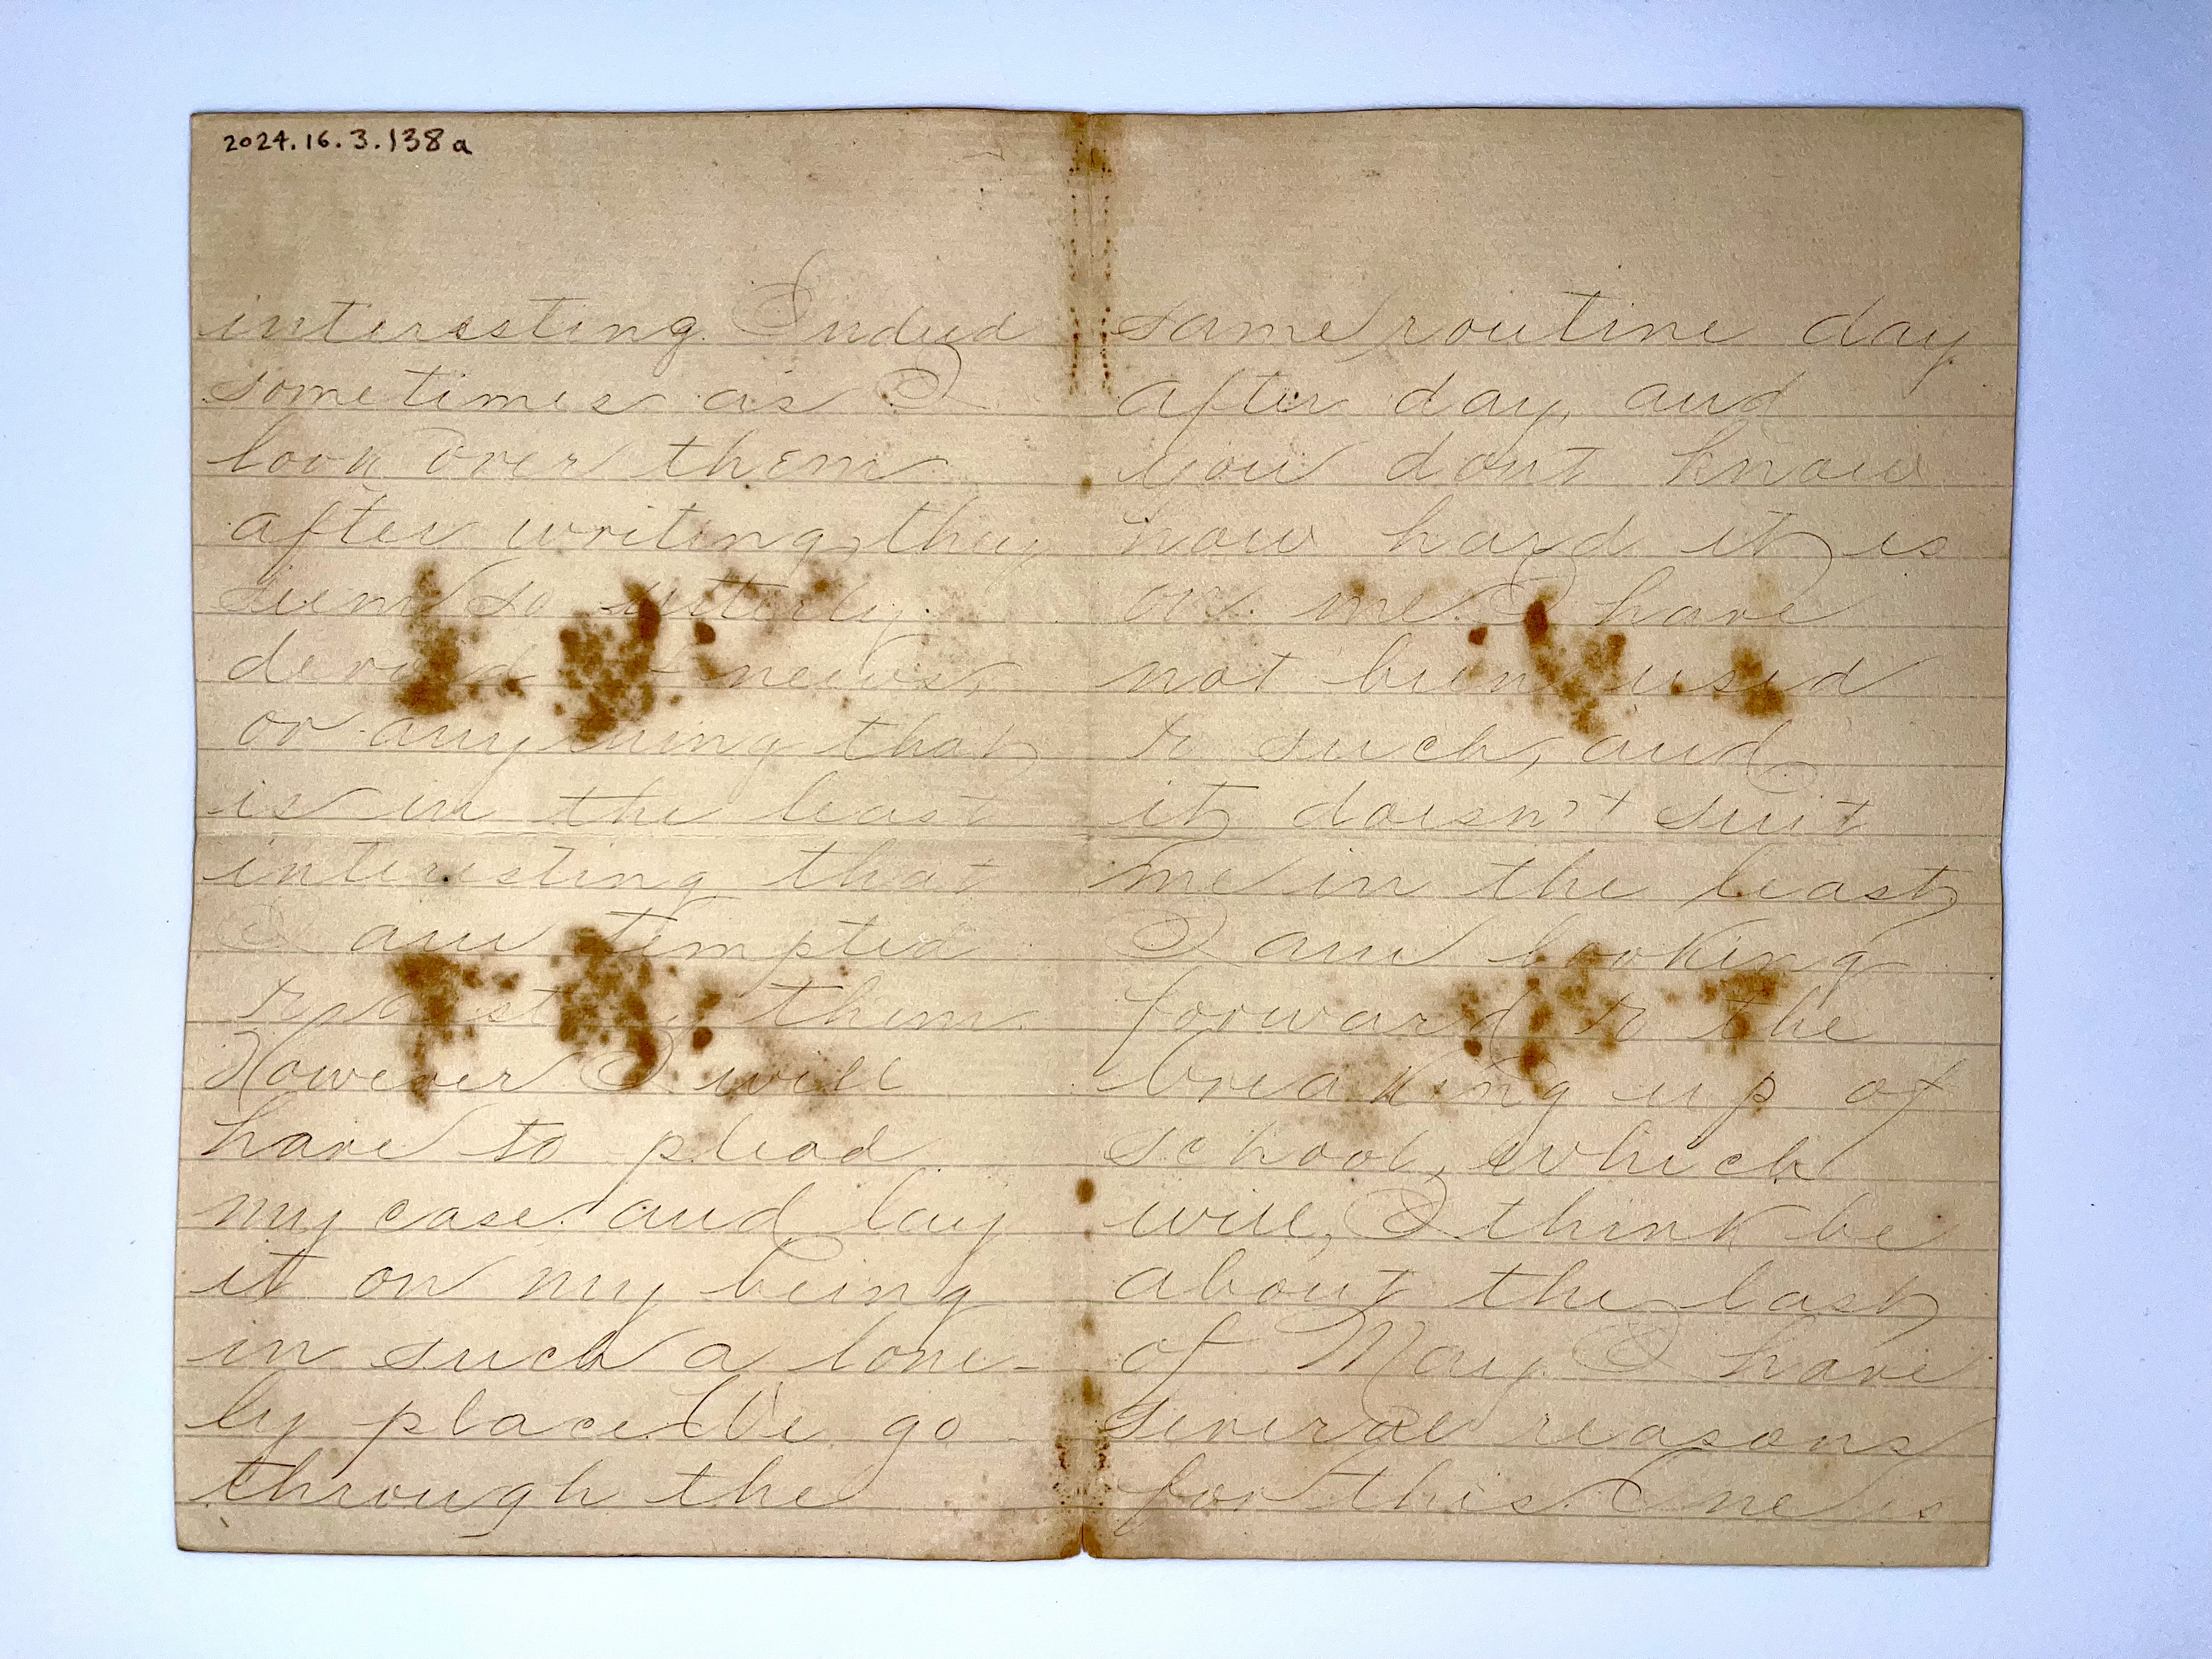 2024.16.3.138a
interesting. Indeed
sometimes as I
look over them
after writing, they
seem so utterly
devoid news,
or anything that
is in the least
interesting that
I am tempted
to them
However I will
have to plead
my case and lay
it on my being
in such a lone-
ly place We go
through the
same routine day
after day, and
you dont know
how hard it is
on me. I have
not been used
to such, and
it doesn't suit
me in the least
I am looking
forward to the
breaking up of
school, which
will, I think be
about the last
of May. I have
several reasons
for this. One is